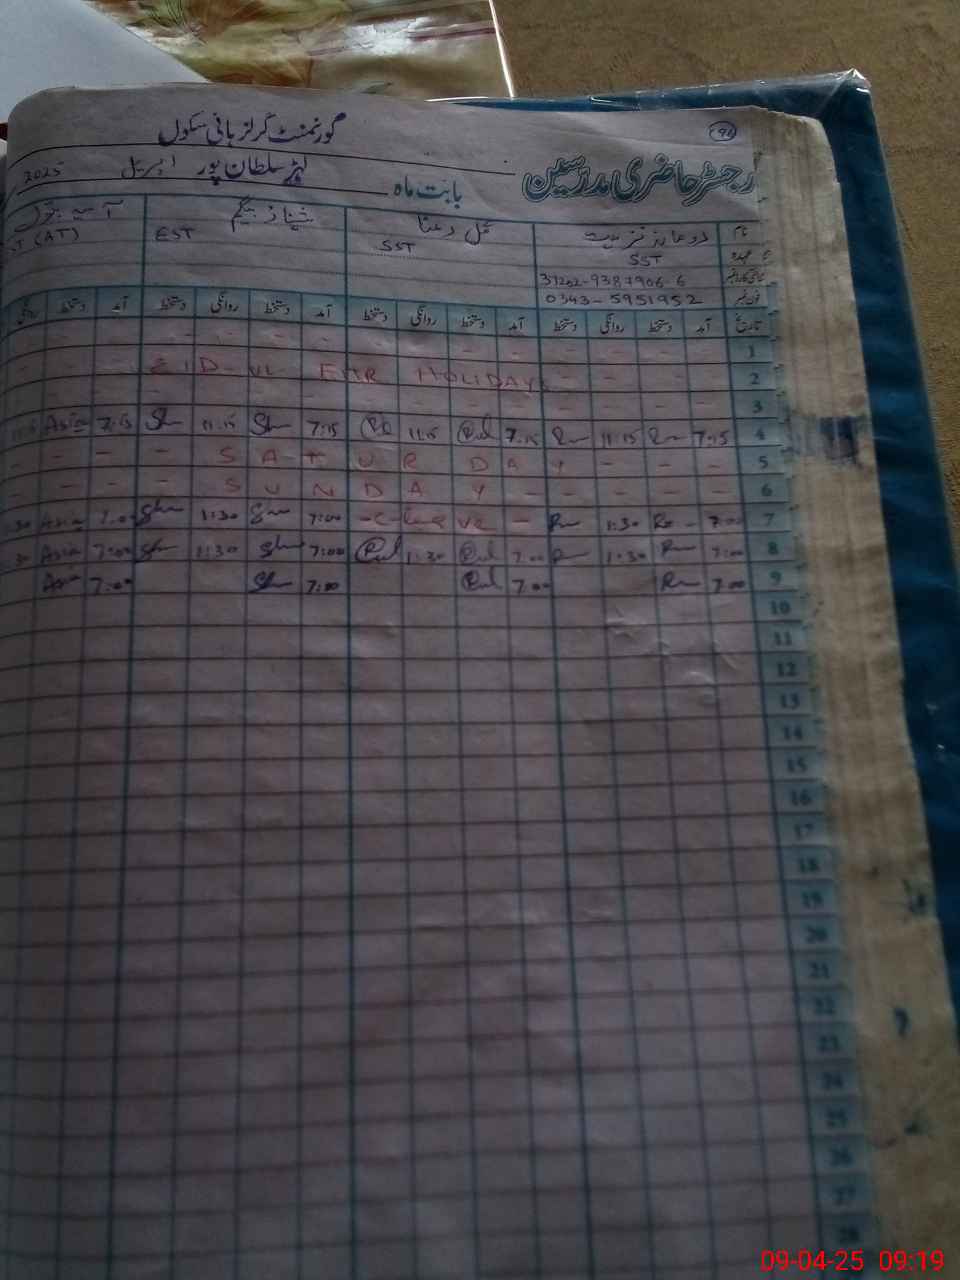 گورنمنٹ گرلز ہائی سکول
96
رجسٹر حاضری مدرسین
بابت ماہ
لہڑ سلطان پور اپریل 2025
نام
شناز بیگم
عہدہ SST SST EST (AT)
شناختی کارڈ نمبر 37202-9387906-6
فون نمبر 0343-5951952
تاریخ آمد دستخط روانگی دستخط آمد دستخط روانگی دستخط آمد دستخط روانگی دستخط آمد دستخط روانگی
1
2 EID-UL FITR HOLIDAYS
3
4 7:15 11:15 7:15 11:15 7:15 11:15 7:15 Asia
5 SATURDAY
6 SUNDAY
7 7:00 1:30 leave 7:00 1:30 7:00 Asia 1:30
8 7:00 1:30 7:00 1:30 7:00 1:30 7:00 Asia 30
9 7:00 7:00 7:00 7:00 Asia
10
11
12
13
14
15
16
17
18
19
20
21
22
23
24
25
26
27
28
09-04-25 09:19